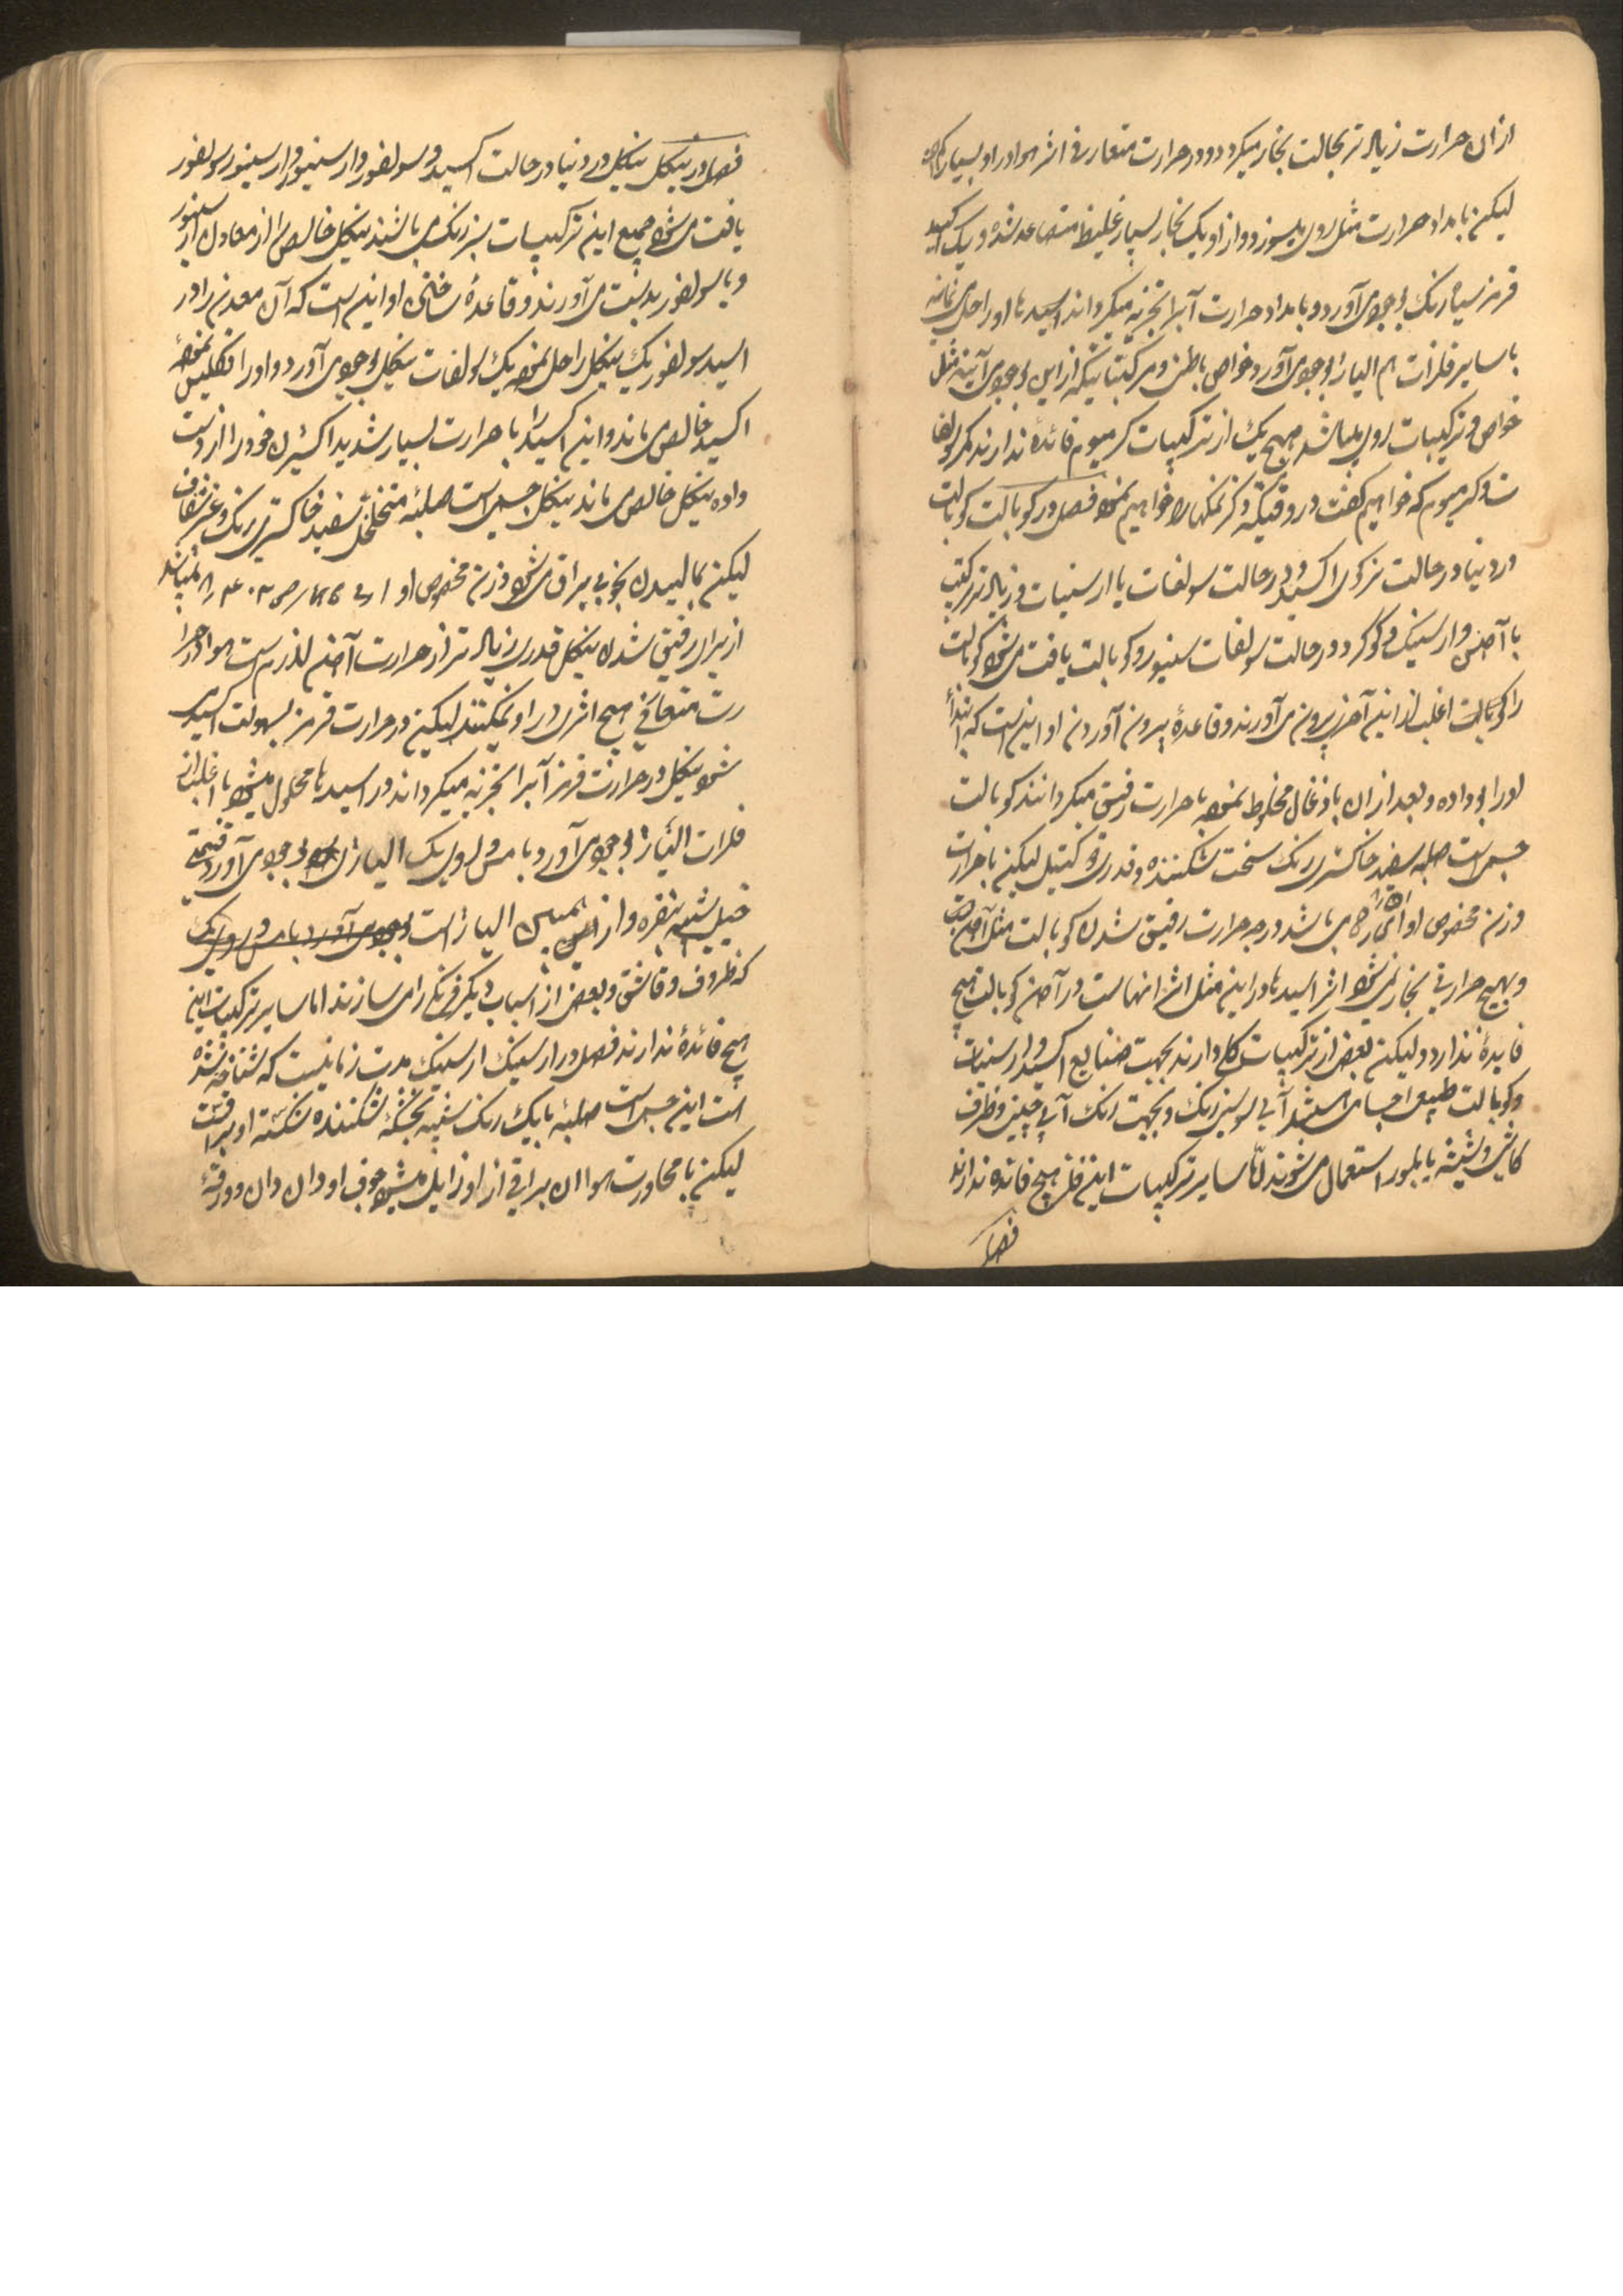 از ان حرارت زیاد تر بحالت بخار میکردد و در حرارت متعارفی اثر هوا در او بسیار کم است
لیکن بامداد حرارت مثل روی میسوزد و از او یک بخار بسیار غلیظ متصاعد شده و یک اکسید
قرمز سیاه رنک بوجود می آورد و بامداد حرارت آبرا تجزیه میکرداند اسیدها او را حل می نمایند
با سایر فلزات هم الیاژ بوجود می آورد و خواص باطنی و مرکباتیکه از این بوجود می آیند مثل
خواص و ترکیبات روی میباشد هیچ یک از ترکیبات کرمیوم فائدۀ ندارند مکر سولفا
ت کرمیوم که خواهیم کفت در وقتیکه ذکر نمکها را خواهیم نمود فصل در کوبالت کوبالت
در دنیا در حالت نزدیک اکسید و در حالت سولفات یا ارسنیات و زیاد تر مرکب
با آهن و ارسنیک و کوکرد و در حالت سولفات سنیور و کوبالت یافت می شود کوبالت
را کوبالت اغلب از این آخری بیرون می آورند و قاعدۀ بیرون آوردن او این است که ابتدأ
او را بو داده و بعد از ان با ذغال مخلوط نموده با حرارت رقیق میکردانند کوبالت
جسمی است صلبه سفید خاکستری رنک سخت شکننده و قدری دو کتیل لیکن با حرارت
وزن مخصوص او ۸٫۵ می باشد درجه حرارت رقیق شدن کوبالت مثل آهن است
و بهیچ حرارتی بخار نمی شود اثر اسیدها در این مثل اثر انهاست در آهن کوبالت هیچ
فایدۀ ندارد و لیکن بعضی از ترکیبات کار دارند بجهت صنایع اکسید و ارسنیات
و کوبالت طبیعی اجسامی هستند آبی یا سبز رنک و بجهت رنک آبی چینی و ظرف
کاشی و شیشه یا بلور استعمال می شوند امّا سایر ترکیبات این فلز هیچ فائده ندارند
فصل
فصل در نیکل نیکل در دنیا در حالت اکسید و سولفور و ارسنیور و ارسنیور سولفور
یافت می شود جمیع این ترکیبات سبز رنک می باشند نیکل خالص را از معادن ارسنیور
و یا سولفور بدست می آورند و قاعدۀ ساختن او این است که آن معدن را در
اسید سولفوریک نیکل را حل نموده یک سولفات نیکل بوجود می آورد و او را تفکلیس نموده
اکسید خالص می ماند و این اکسید را با حرارت بسیار شدید اکسیژن خود را از دست
داده نیکل خالص می ماند نیکل جسمی است صلبۀ متخلخل سفید خاکستری رنک و غیر شفاف
لیکن بمالیدن بخوبی براق می شود وزن مخصوص او از می باشد
از برای رقیق شدن نیکل قدری زیاد تر از حرارت آهن لازم است هوا در حرا
رت متعارفی هیچ اثری در او نمیکند لیکن در حرارت قرمز بسهولت اکسید می
شود نیکل در حرارت قرمز آبرا تجزیه میکرداند در اسیدها محلول میشود با اغلب از
فلزات الیاژ بوجود می آورد با مس و روی یک الیاژی بوجود می آورد قیمتی
خیلی شبیه بنقره و از همین الیاژ است بوجود می آورد با مس و روی یک
که ظروف و قاشق و بعضی از اسباب دیکر فرنکی را می سازند اما سایر ترکیبات این
هیچ فائدۀ ندارند فصل در ارسنیک ارسنیک مدت زمانیست که شناخته شده
است این جسمی است صلبۀ با یک رنک شبیه بخشۀ شکننده شکسته او براقست
لیکن با مجاورت هوا ان براقی از او زایل میشود جوف او دان دان و ورقۀ